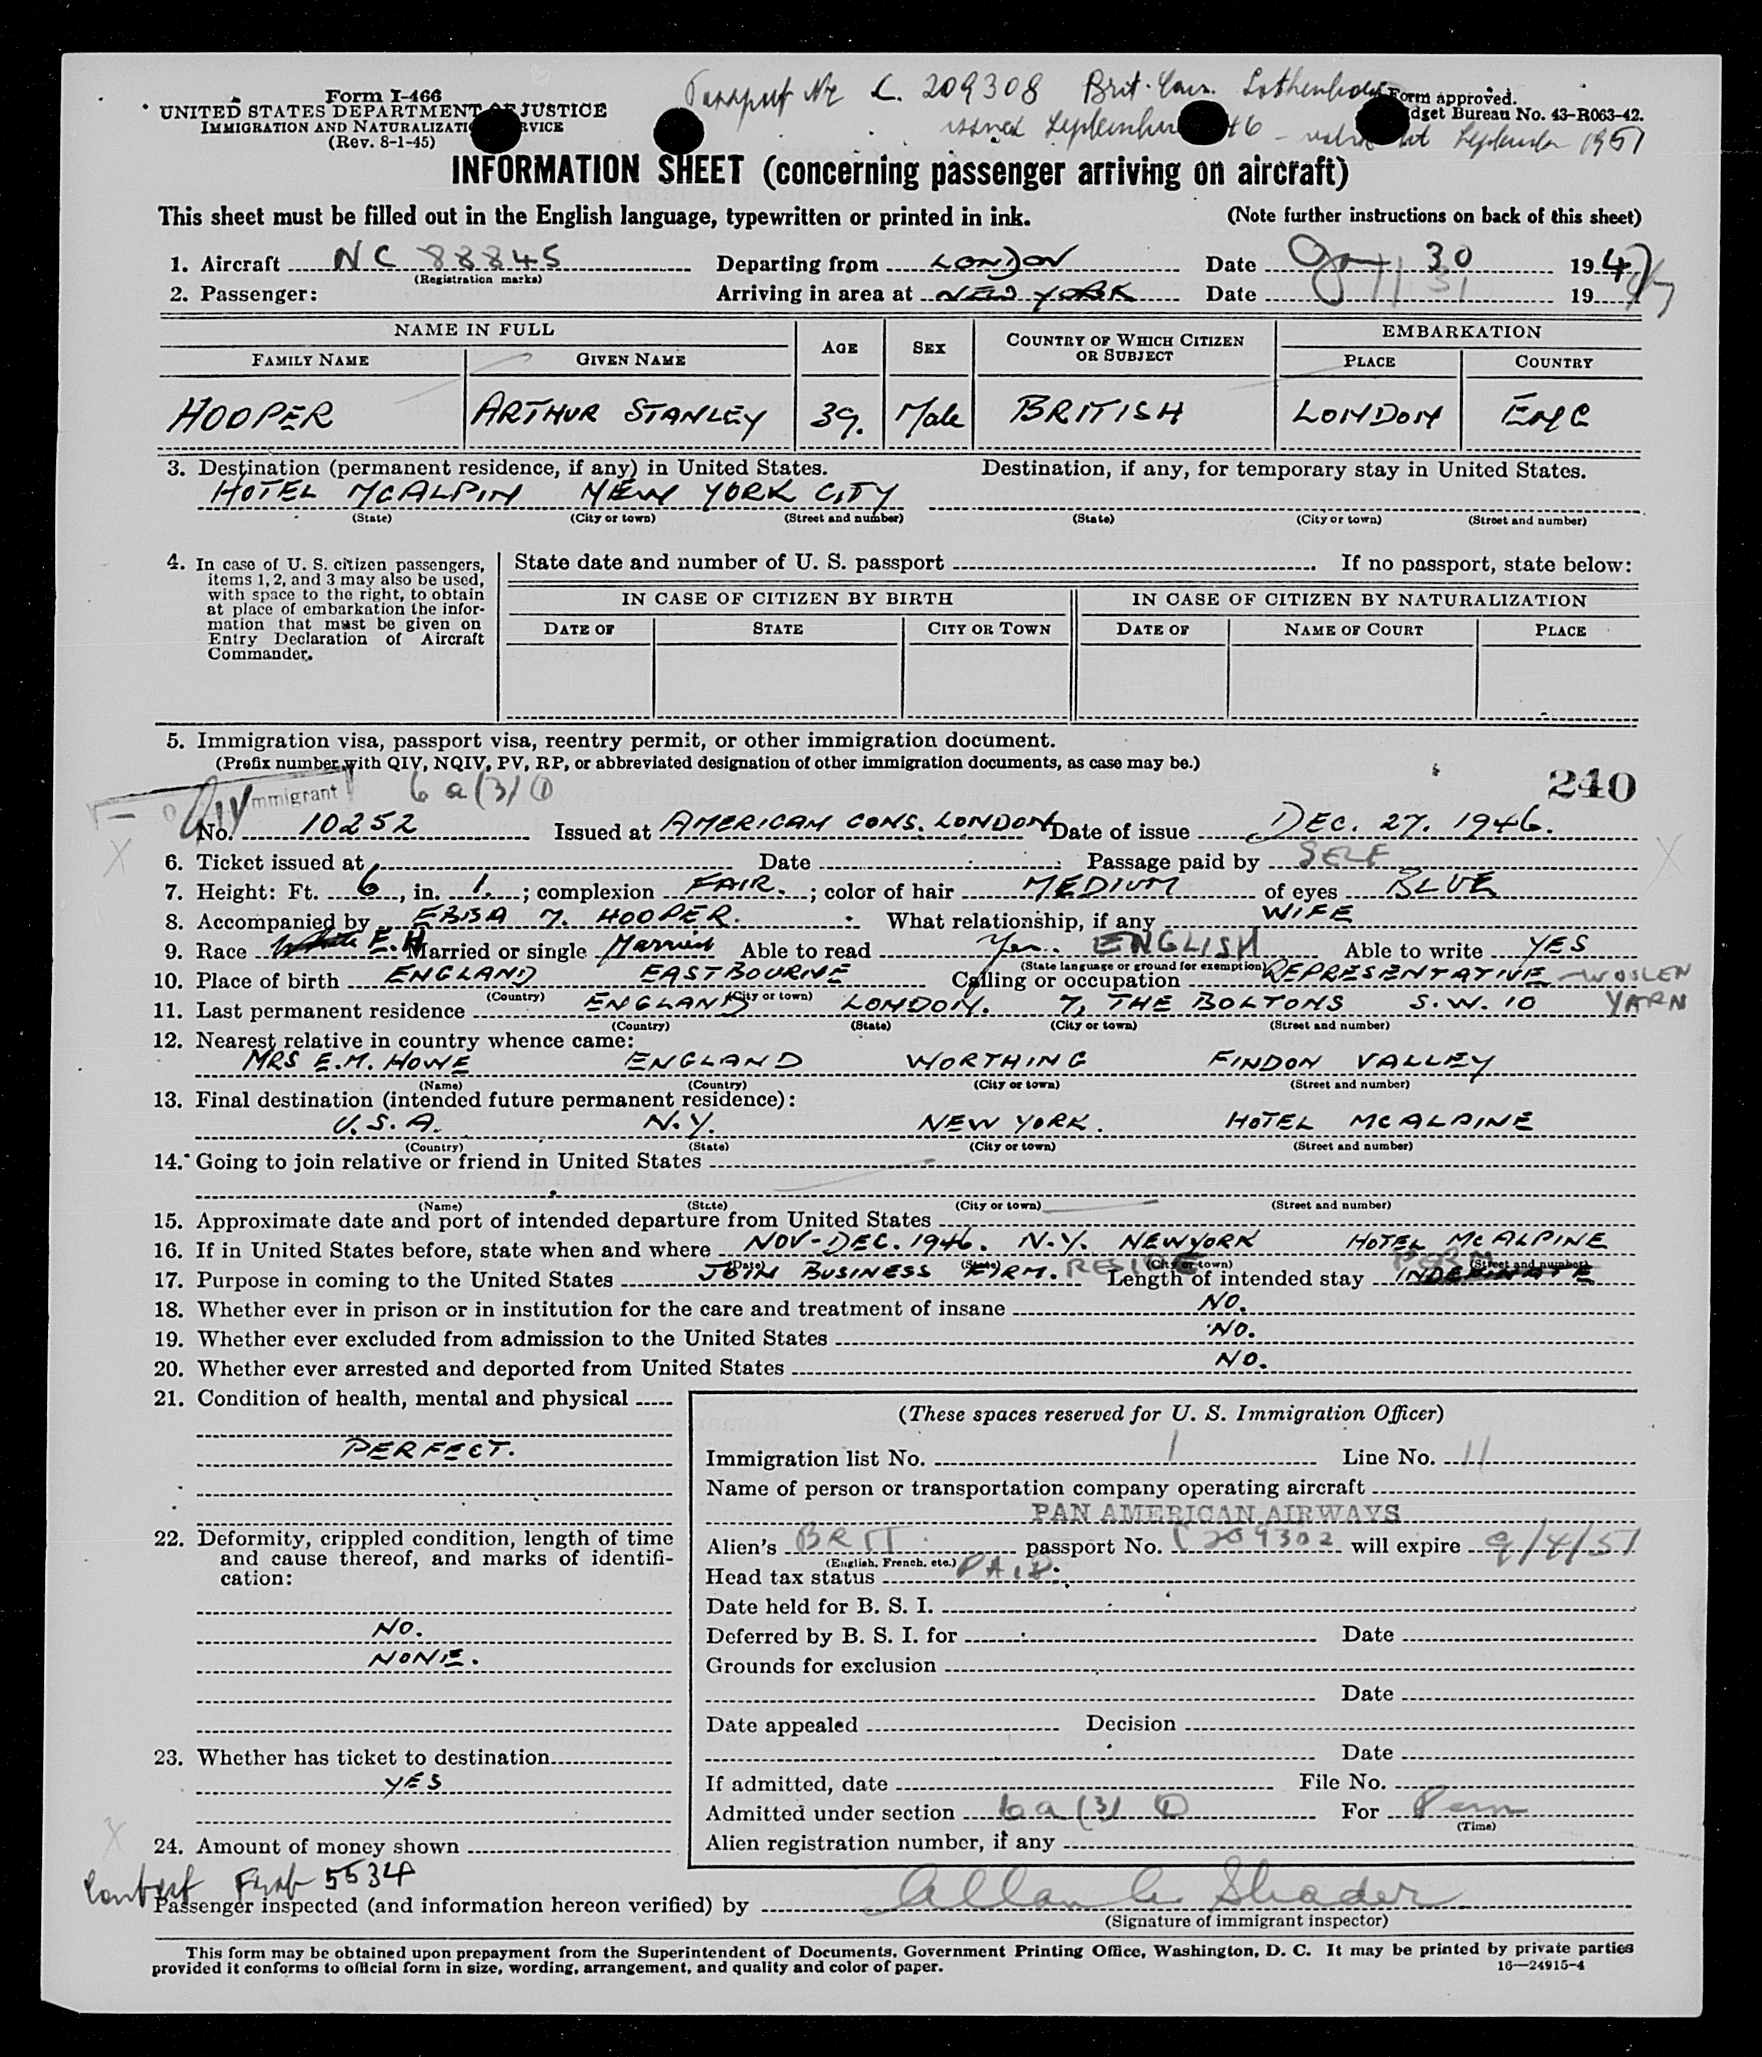 Form I-466
UNITED STATES DEPARTMENT OF JUSTICE
IMMIGRATION AND NATURALIZATION SERVICE
(Rev. 8-1-45)
Passport Nr C. 209308 Brit. Cons.
issued September 46 - September 1951
Form approved.
Budget Bureau No. 43-R063-42.
INFORMATION SHEET (concerning passenger arriving on aircraft)
This sheet must be filled out in the English language, typewritten or printed in ink. (Note further instructions on back of this sheet)
1. Aircraft NC 88845 Departing from LONDON Date Jan 30 1947
(Registration marks)
2. Passenger: Arriving in area at NEW YORK Date 31 19
NAME IN FULL AGE SEX COUNTRY OF WHICH CITIZEN OR SUBJECT EMBARKATION
FAMILY NAME GIVEN NAME PLACE COUNTRY
HOOPER ARTHUR STANLEY 39. Male BRITISH LONDON ENG
3. Destination (permanent residence, if any) in United States. Destination, if any, for temporary stay in United States.
HOTEL MCALPIN NEW YORK CITY
(State) (City or town) (Street and number) (State) (City or town) (Street and number)
4. In case of U. S. citizen passengers, items 1, 2, and 3 may also be used, with space to the right, to obtain at place of embarkation the information that must be given on Entry Declaration of Aircraft Commander.
State date and number of U. S. passport If no passport, state below:
IN CASE OF CITIZEN BY BIRTH IN CASE OF CITIZEN BY NATURALIZATION
DATE OF STATE CITY OR TOWN DATE OF NAME OF COURT PLACE
5. Immigration visa, passport visa, reentry permit, or other immigration document.
(Prefix number with QIV, NQIV, PV, RP, or abbreviated designation of other immigration documents, as case may be.)
QIV immigrant 6 a (3) (1) 240
No. 10252 Issued at AMERICAN CONS. LONDON Date of issue DEC. 27. 1946.
6. Ticket issued at Date Passage paid by SELF
7. Height: Ft. 6, in. 1. ; complexion FAIR. ; color of hair MEDIUM of eyes BLUE
8. Accompanied by EBBA M. HOOPER. What relationship, if any WIFE
9. Race White E.H Married or single Married Able to read Yes. ENGLISH Able to write YES
(State language or ground for exemption)
10. Place of birth ENGLAND EASTBOURNE Calling or occupation REPRESENTATIVE - WOOLEN YARN
(Country) (City or town)
11. Last permanent residence ENGLAND LONDON. 7, THE BOLTONS S.W. 10
(Country) (State) (City or town) (Street and number)
12. Nearest relative in country whence came:
MRS E.M. HOWE ENGLAND WORTHING FINDON VALLEY
(Name) (Country) (City or town) (Street and number)
13. Final destination (intended future permanent residence):
U.S.A. N.Y. NEW YORK. HOTEL MCALPINE
(Country) (State) (City or town) (Street and number)
14. Going to join relative or friend in United States
(Name) (State) (City or town) (Street and number)
15. Approximate date and port of intended departure from United States
16. If in United States before, state when and where NOV-DEC. 1946. N.Y. NEWYORK HOTEL MCALPINE
(Date) (State) (City or town) (Street and number)
17. Purpose in coming to the United States JOIN BUSINESS FIRM. RESIDE Length of intended stay PERM INDEFINATE
18. Whether ever in prison or in institution for the care and treatment of insane NO.
19. Whether ever excluded from admission to the United States NO.
20. Whether ever arrested and deported from United States NO.
21. Condition of health, mental and physical
PERFECT.
22. Deformity, crippled condition, length of time
and cause thereof, and marks of identifi-
cation:
NO.
NONE.
23. Whether has ticket to destination
YES
24. Amount of money shown
(These spaces reserved for U. S. Immigration Officer)
Immigration list No. 1 Line No. 11
Name of person or transportation company operating aircraft
PAN AMERICAN AIRWAYS
Alien's BRIT. passport No. C 209302 will expire 9/4/51
(English, French, etc.)
Head tax status PAID.
Date held for B. S. I.
Deferred by B. S. I. for Date
Grounds for exclusion
Date
Date appealed Decision
Date
If admitted, date File No.
Admitted under section 6a (3) (1) For Perm
(Time)
Alien registration number, if any
5534
Passenger inspected (and information hereon verified) by Allan C. Shader
(Signature of immigrant inspector)
This form may be obtained upon prepayment from the Superintendent of Documents, Government Printing Office, Washington, D. C. It may be printed by private parties
provided it conforms to official form in size, wording, arrangement, and quality and color of paper. 16—24915-4